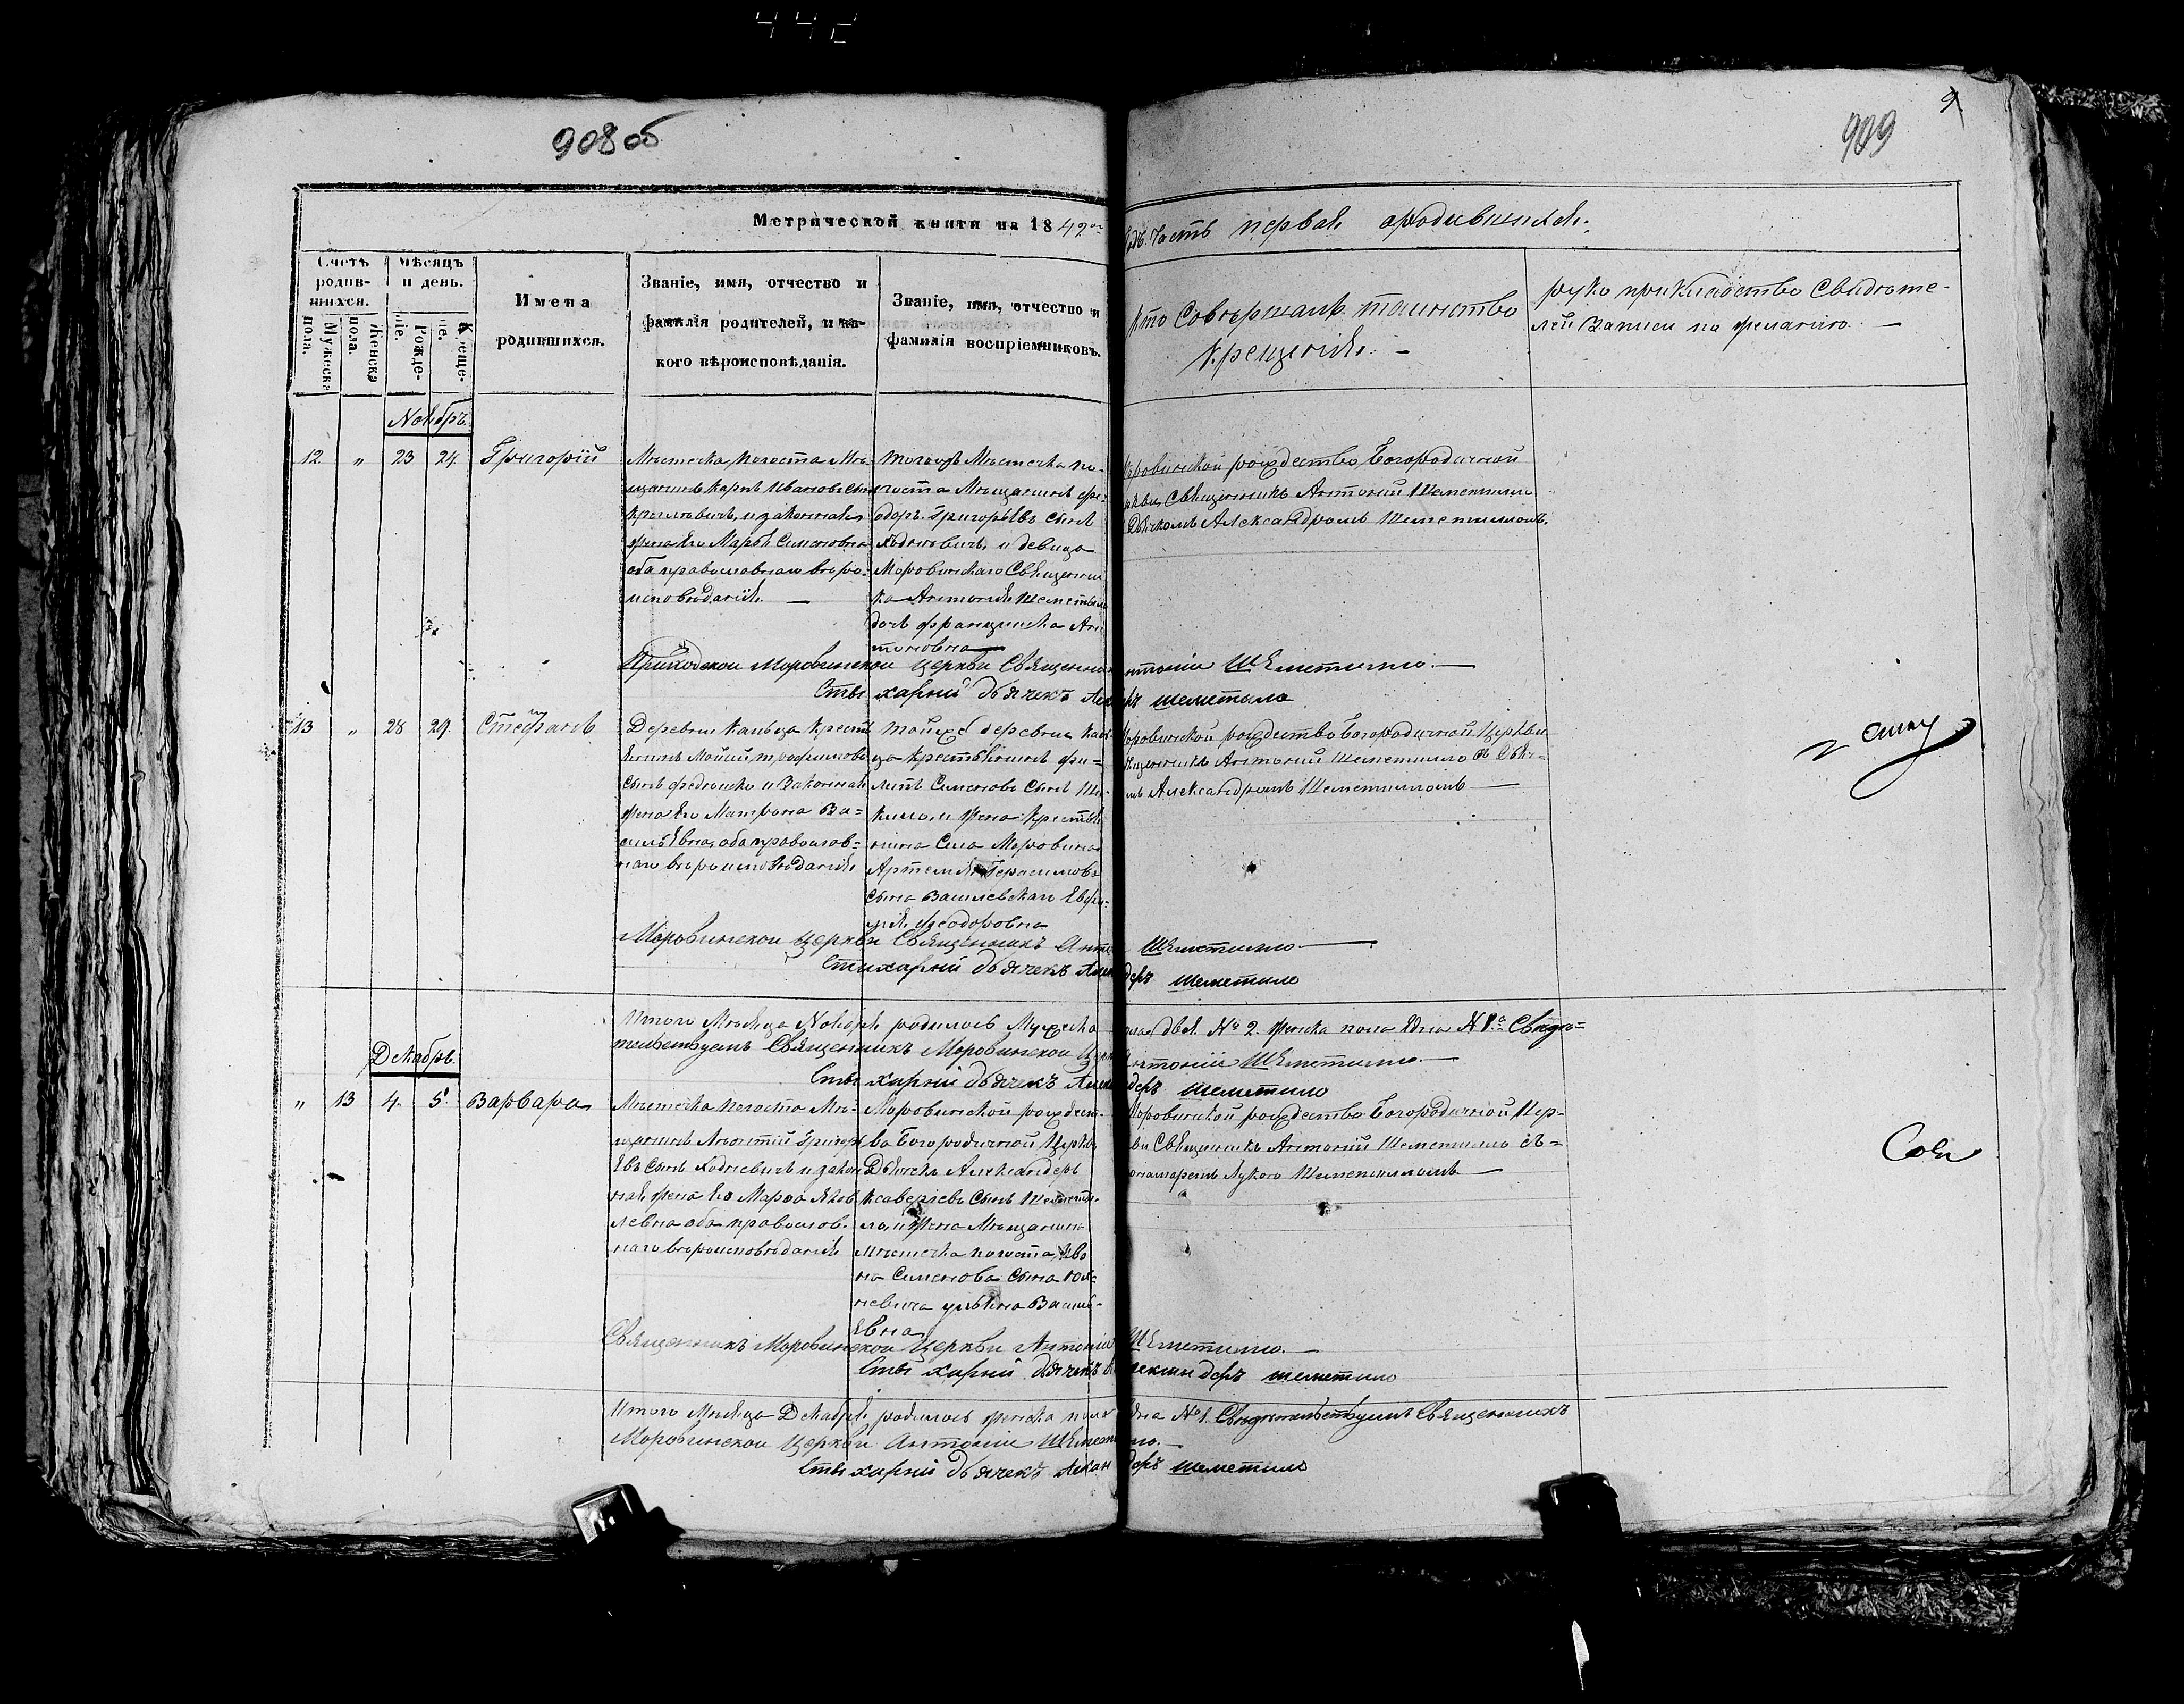 442
908 об
909
9
Метрической книги на 1842й
годъ. Часть первая о родившихся.
Счетъ родив-шихся.
Мѣсяцъ и день.
Мужеска пола.
Женска пола.
Рожде-ніе.
Креще-ніе.
Имена
родившихся.
Званіе, имя, отчество и
фамилія родителей, и ка-
кого вѣроисповѣданія.
Званіе, имя, отчество и
фамилія воспріемниковъ.
Кто Совершалъ таинство
крещенія. —
рукоприкладство Свидѣте-
лей записи по желанію. —
Ноябрь
12. „ 23 24. Григорій
Мѣстечка Погоста Мѣ-
щанинъ Карпъ Ивановъ сынъ
и законная
жена Его Марья Семеновна
оба православнаго вѣро-
исповѣданія. —
Тогожъ Мѣстечка По-
госта Мѣщанинъ Фе-
одоръ Григорьевъ сынъ
Ходневичъ, и девица
Моровинскаго Священни
ка Антонія Шеметила
дочь Францишка Ан-
тоновна
Моровинской рождество Богородичной
церкви Священникъ Антоній Шеметилло
Дьячкомъ Александромъ Шеметилломъ.
Приходской Моровинской Церкви Священникъ Антоній Шеметилло. —
Стыхарній дьячекъ Александръ шеметило
13 „ 28 29. Стефанъ
Деревни Кальца Крестья
Трофимовъ
сынъ Федюшко и Законная
жена Его Матрона Ва-
сильЕвна, оба православ-
наго вѣроисповѣданія
Тойже деревни Каль
ца Крестьянинъ Фи-
липъ Семеновъ сынъ Ши-
кило, и жена Крестья
нина Села Моровина
Артемія Герасимова
сына Василевскаго Евфи-
мія Феодоровна
Моровинской рождество Богородичной Церкви
Священникъ Антоній Шеметилло съ Дьяч-
комъ Александромъ Шеметилломъ —
Моровинской Церкви Священникъ Антоній Шеметилло —
Стихарній дьячекъ Александеръ шеметило
Итого Мѣсяца Ноября родилось Мужеска пола два № 2. женска пола Една № 1.а Свидѣ=
тельствуемъ Священникъ Моровинской Церкви Антоній Шеметилло. —
Стыхарній дьячекъ Александеръ шеметило
Декабрь
„ 13 4. 5. Варвара
Мѣстечка Погоста Мѣ-
щанинъ Леонтій Григорь
Евъ сынъ Ходневичъ и закон
ная жена Его Марѳа Яков
левна оба православ-
наго вѣроисповѣданія
Моровинской рождест-
ва Богородичной Церкви
Дьячекъ Александеръ
Ксаверіевъ сынъ Шемети
ло, и жена Мѣщанина
мѣстечка Погоста Ива
на Семенова сына
невича Ульяна Василь-
Евна
Моровинской рождество Богородичной Цер-
кви Священникъ Антоній Шеметилло съ-
понамаремъ Лукою Шеметилломъ —
Священникъ Моровинской Церкви Антоній Шеметилло. —
Стыхарній дьячекъ Александеръ шеметило
Итого Мѣсяца Декабря, родилось женска пола Една № 1. Свидѣтельствуемъ Священникъ
Моровинской Церкви Антоній Шеметилло. —
Стыхарній дьячекъ Александеръ шеметило